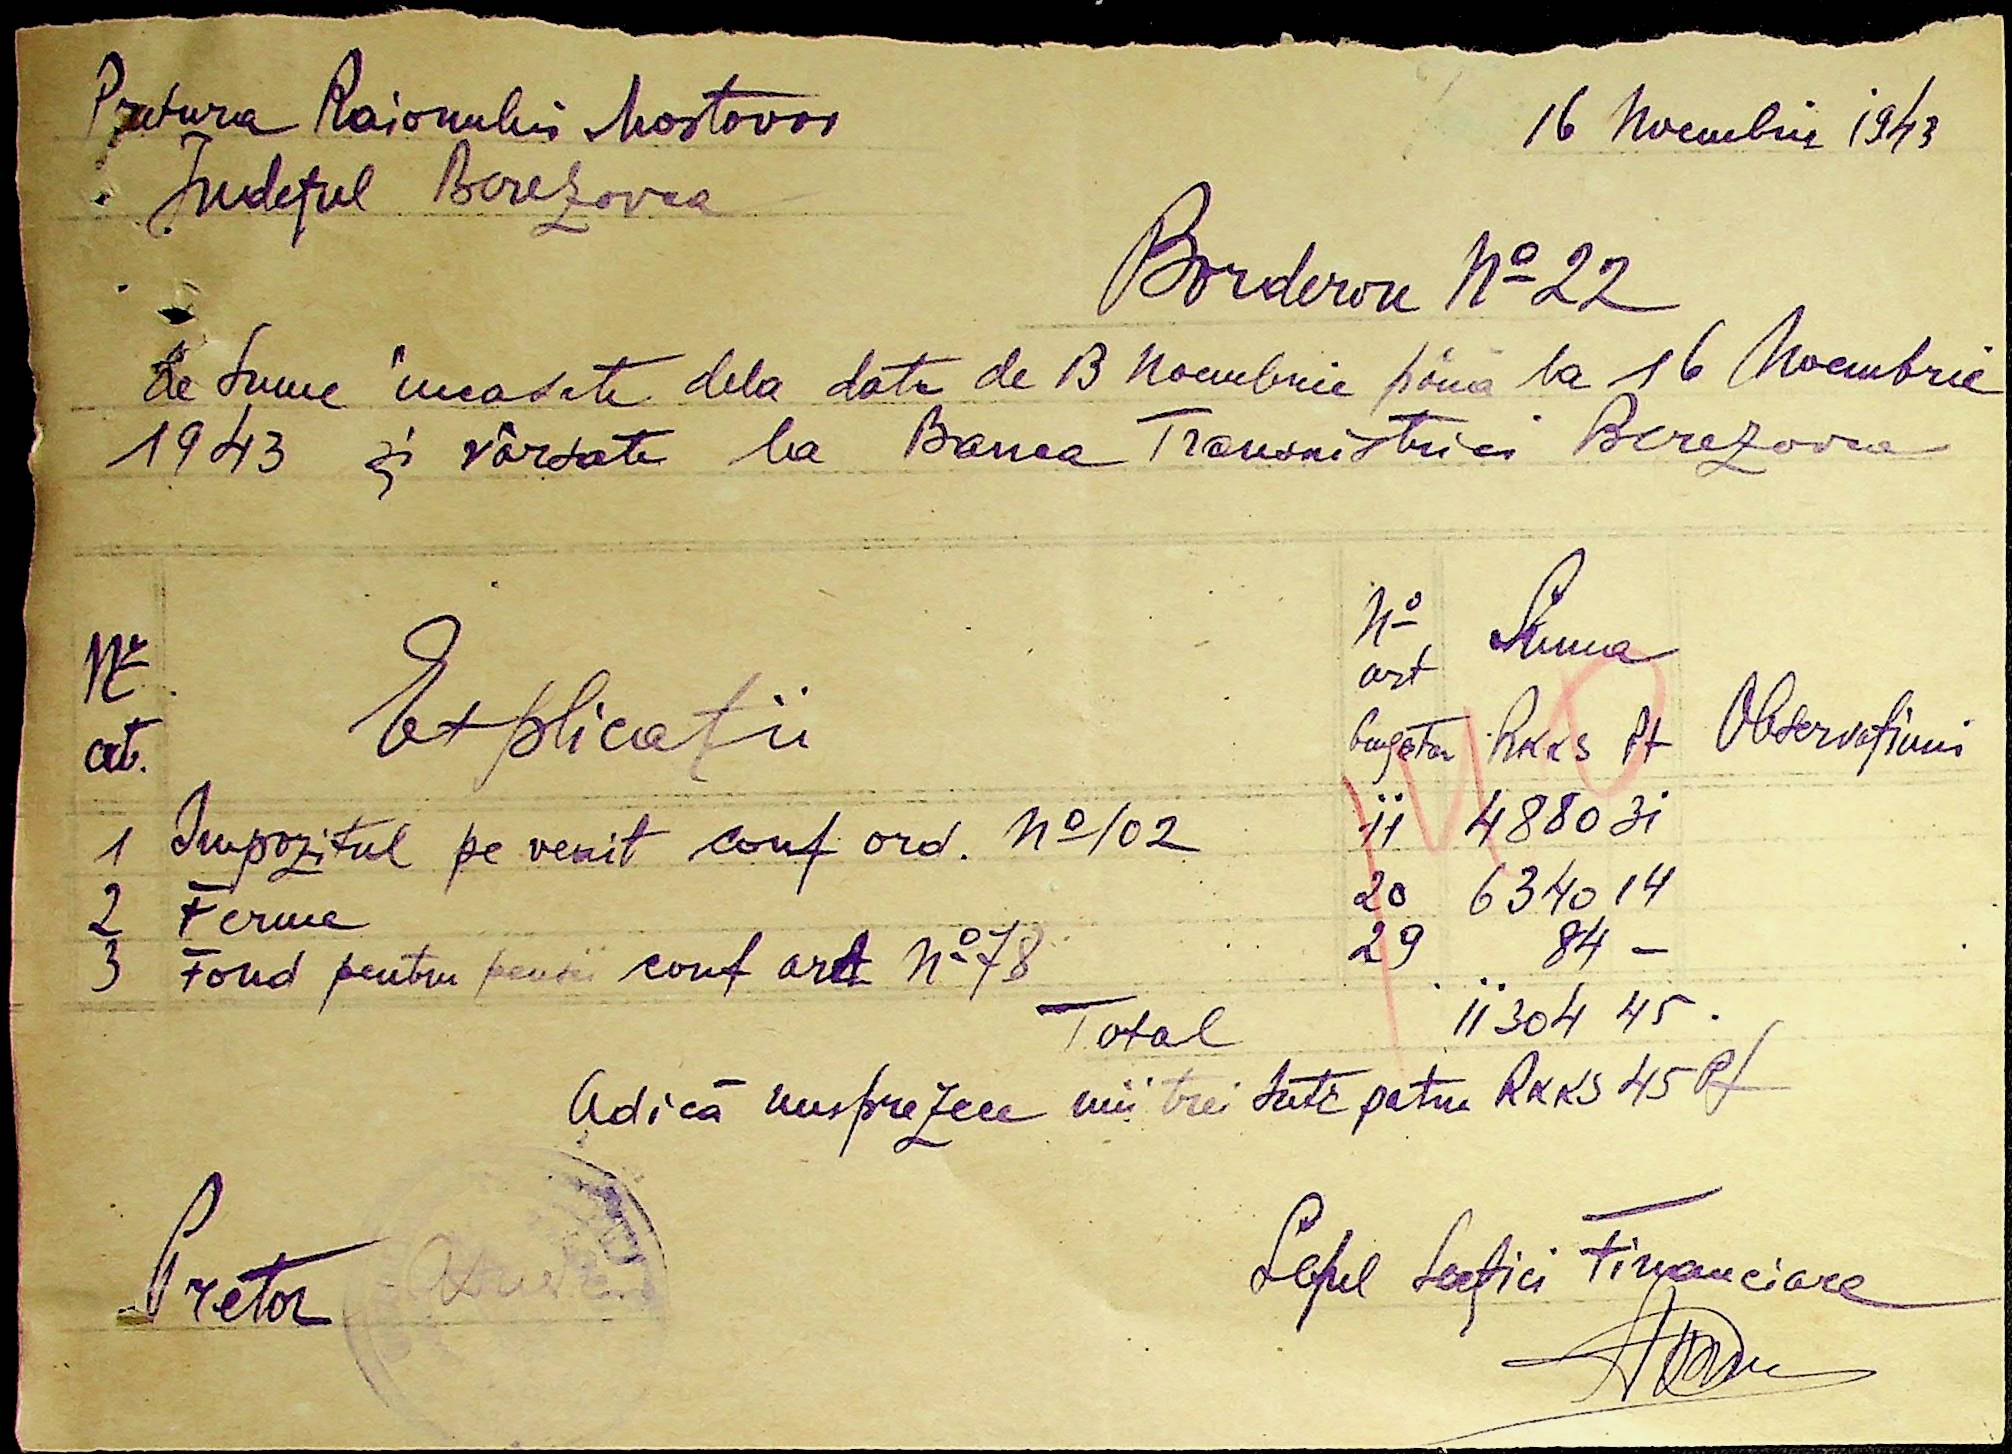 Pretura Raionului Mostovoi
16 Noembrie 1943
Județul Berezovca
Borderou Nº 22
de sume încasate dela data de 13 Noembrie până la 16 Noembrie
1943 și vărsate la Banca Transnistriei Berezovca
Nº crt. Explicații Nº art bugetar Suma RKKS Pf Observațiuni
1 Impozitul pe venit conf ord. Nº 102 11 4880 31
2 Ferme 20 6340 14
3 Fond pentru pensii conf art Nº 78 29 84 –
Total 11304 45.
Adică unsprezece mii trei sute patru RKKS 45 Pf
Pretor
Șeful Secției Financiare